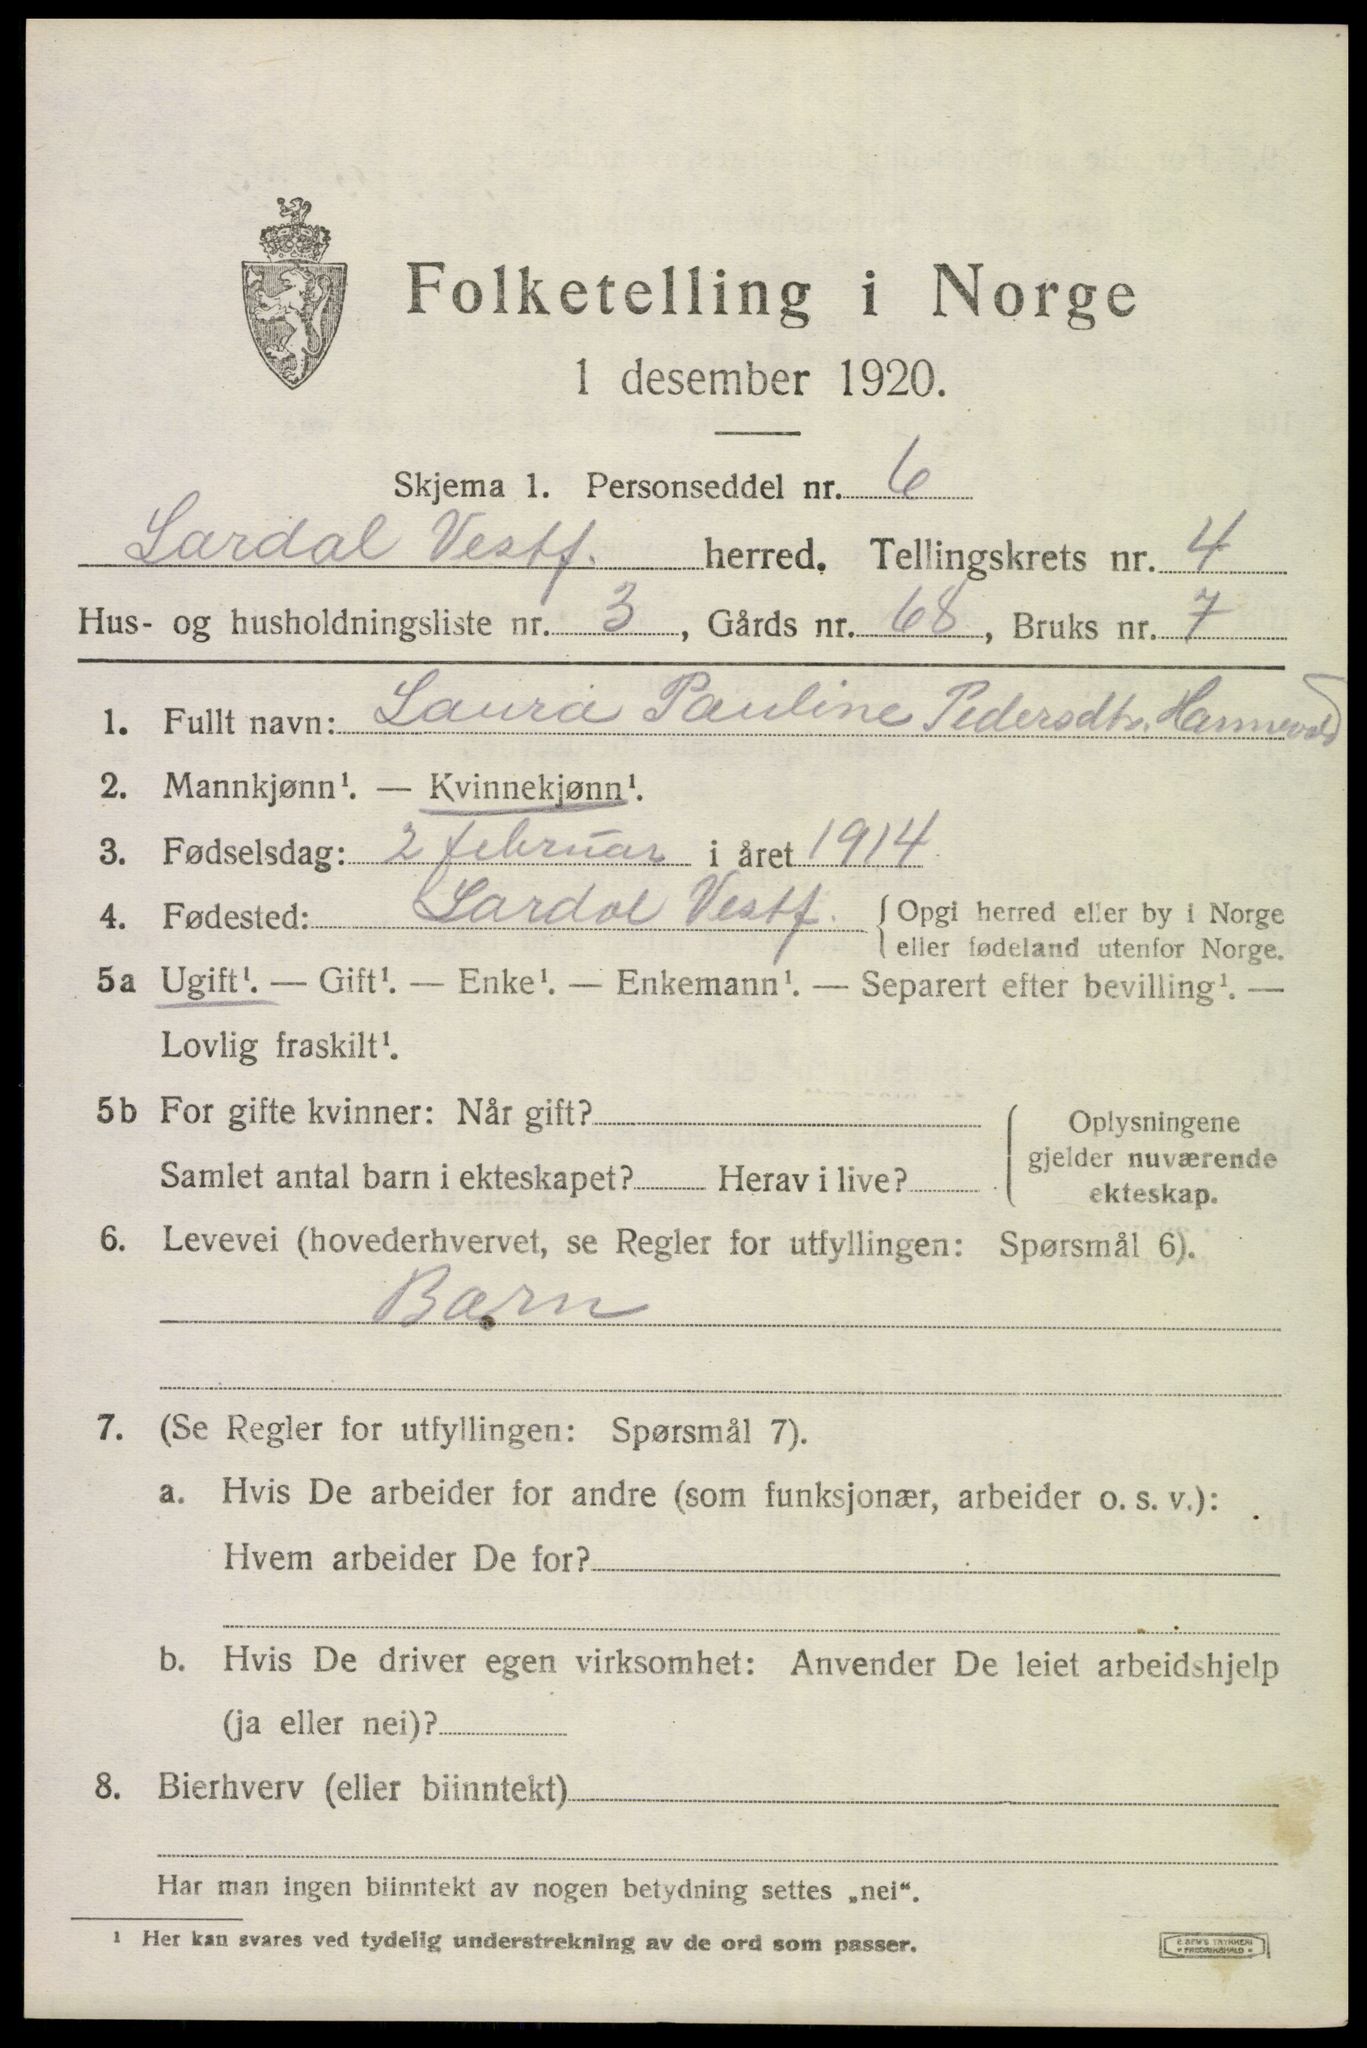 Folketelling i Norge
1 desember 1920.
Skjema 1. Personseddel nr. 6
Lardal Vestf. herred. Tellingskrets nr. 4
Hus- og husholdningsliste nr. 3, Gårds nr. 68, Bruks nr. 7
1. Fullt navn: Laura Pauline Pedersdtr. Hannevold
2. Mannkjønn¹. — Kvinnekjønn¹.
3. Fødselsdag: 2 februar i året 1914
4. Fødested: Lardal Vestf. { Opgi herred eller by i Norge
eller fødeland utenfor Norge.
5a Ugift¹. — Gift¹. — Enke¹. — Enkemann¹. — Separert efter bevilling¹. —
Lovlig fraskilt¹.
5b For gifte kvinner: Når gift?
Samlet antal barn i ekteskapet? Herav i live?
Oplysningene
gjelder nuværende
ekteskap.
6. Levevei (hovederhvervet, se Regler for utfyllingen: Spørsmål 6).
Barn
7. (Se Regler for utfyllingen: Spørsmål 7).
a. Hvis De arbeider for andre (som funksjonær, arbeider o. s. v.):
Hvem arbeider De for?
b. Hvis De driver egen virksomhet: Anvender De leiet arbeidshjelp
(ja eller nei)?
8. Bierhverv (eller biinntekt)
Har man ingen biinntekt av nogen betydning settes „nei“.
¹ Her kan svares ved tydelig understrekning av de ord som passer.
TRYKKERI
FREDRIKSHALD